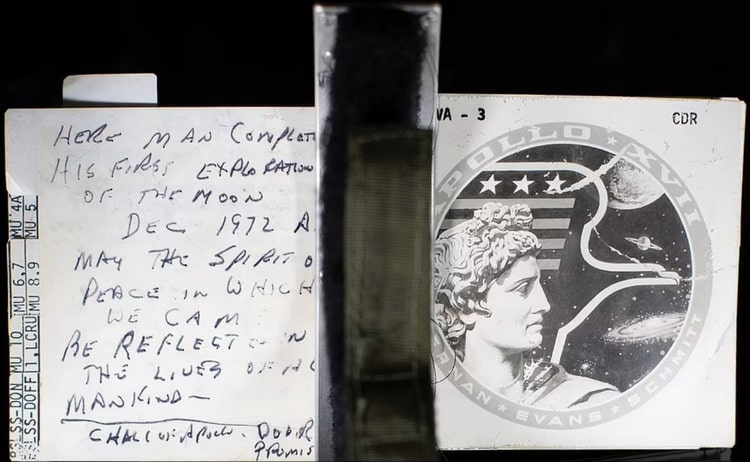 HERE MAN COMPLET
HIS FIRST EXPLORATION
OF THE MOON
DEC 1972 A
MAY THE SPIRIT O
PEACE IN WHICH
WE CAM
BE REFLECTED IN
THE LIVES OF
MANKIND—
CHALL
PROMIS
MU 4A
MU 5
MU 6.7
MU 8.9
MU 10
LCRU
SS-DON
SS-DOFF 1,
VA - 3
CDR
APOLLO XVII
RNAN ★ EVANS ★ SCHMITT